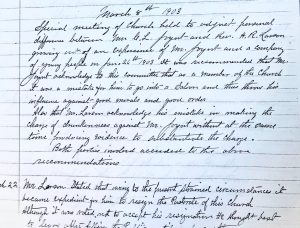 March 8th 1903
Special meeting of Church held to adjust personal
difference between Mr. C. L. and Rev. H. R. Larson
growing out of an experience of Mr. and a company
of young people on June 26th 1903. It was recommended that Mr
acknowledge to this committee that as a member of the Church
it was a mistake for him to go into a Saloon and thus throw his
influence against good morals and good order.
Also that Mr Larson acknowledge his mistake in making the
charge of drunkenness against Mr. without at the same
time producing evidence to substantiate the charge.
Both parties involved acceded to the above
recommendations
22 Mr. Larson stated that owing to the present strained circumstances it
became expedient for him to resign the Pastorate of this Church
Although it was voted not to accept his resignation he thought best
to